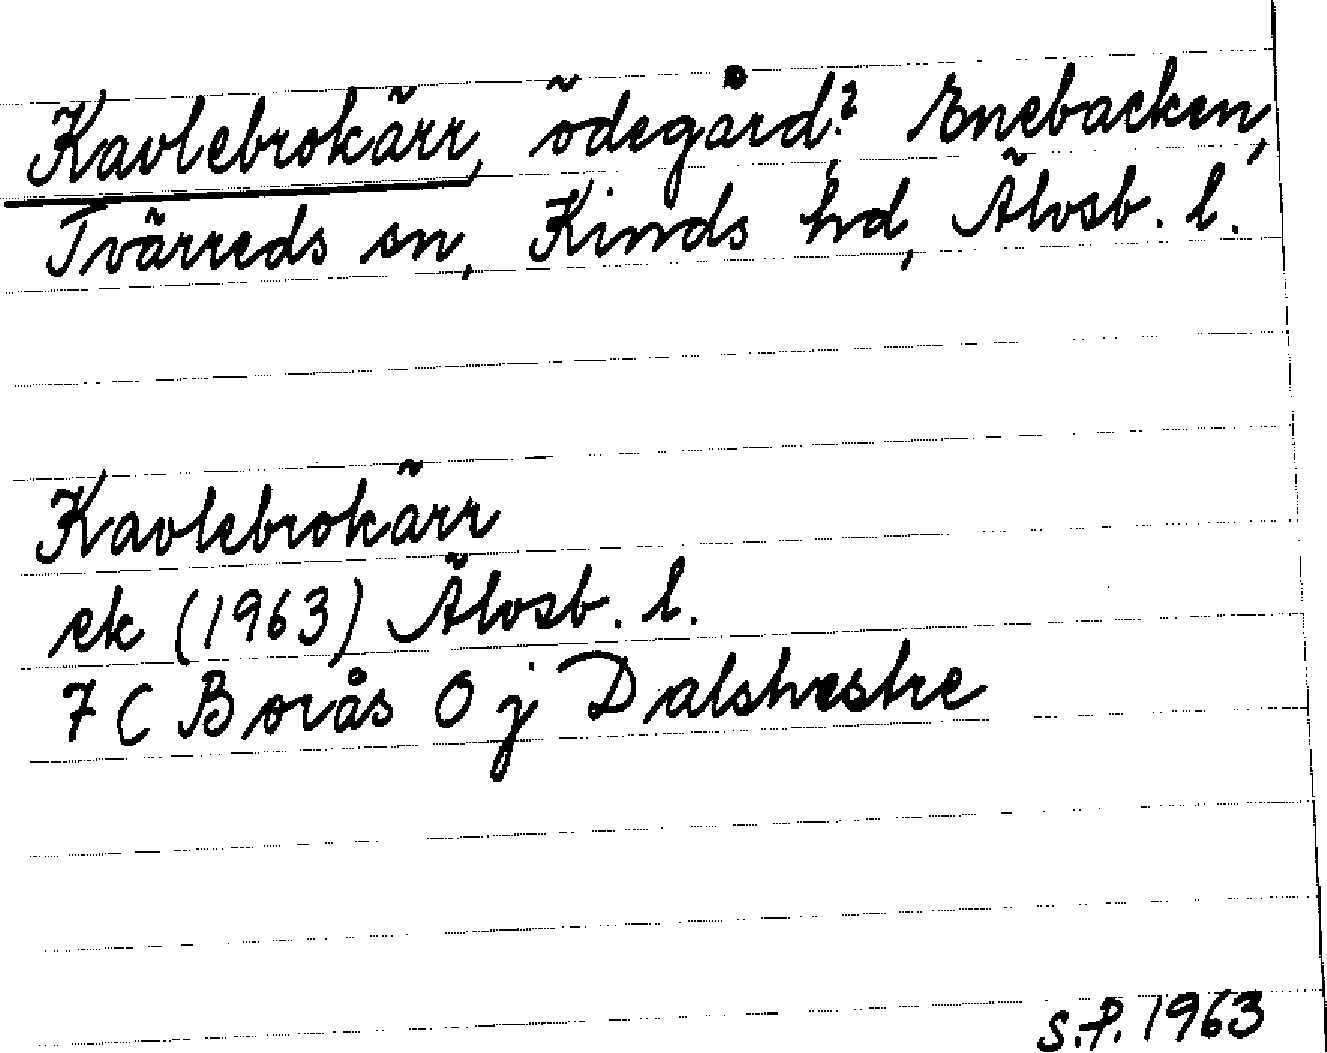 Kavlebrokärr, ödegård? Enebacken,
Tvärreds sn, Kinds hd, Älvsb. l.
Kavlebrokärr
ek (1963) Älvsb. l.
7 C Borås O j Dalshestre
S.P. 1963